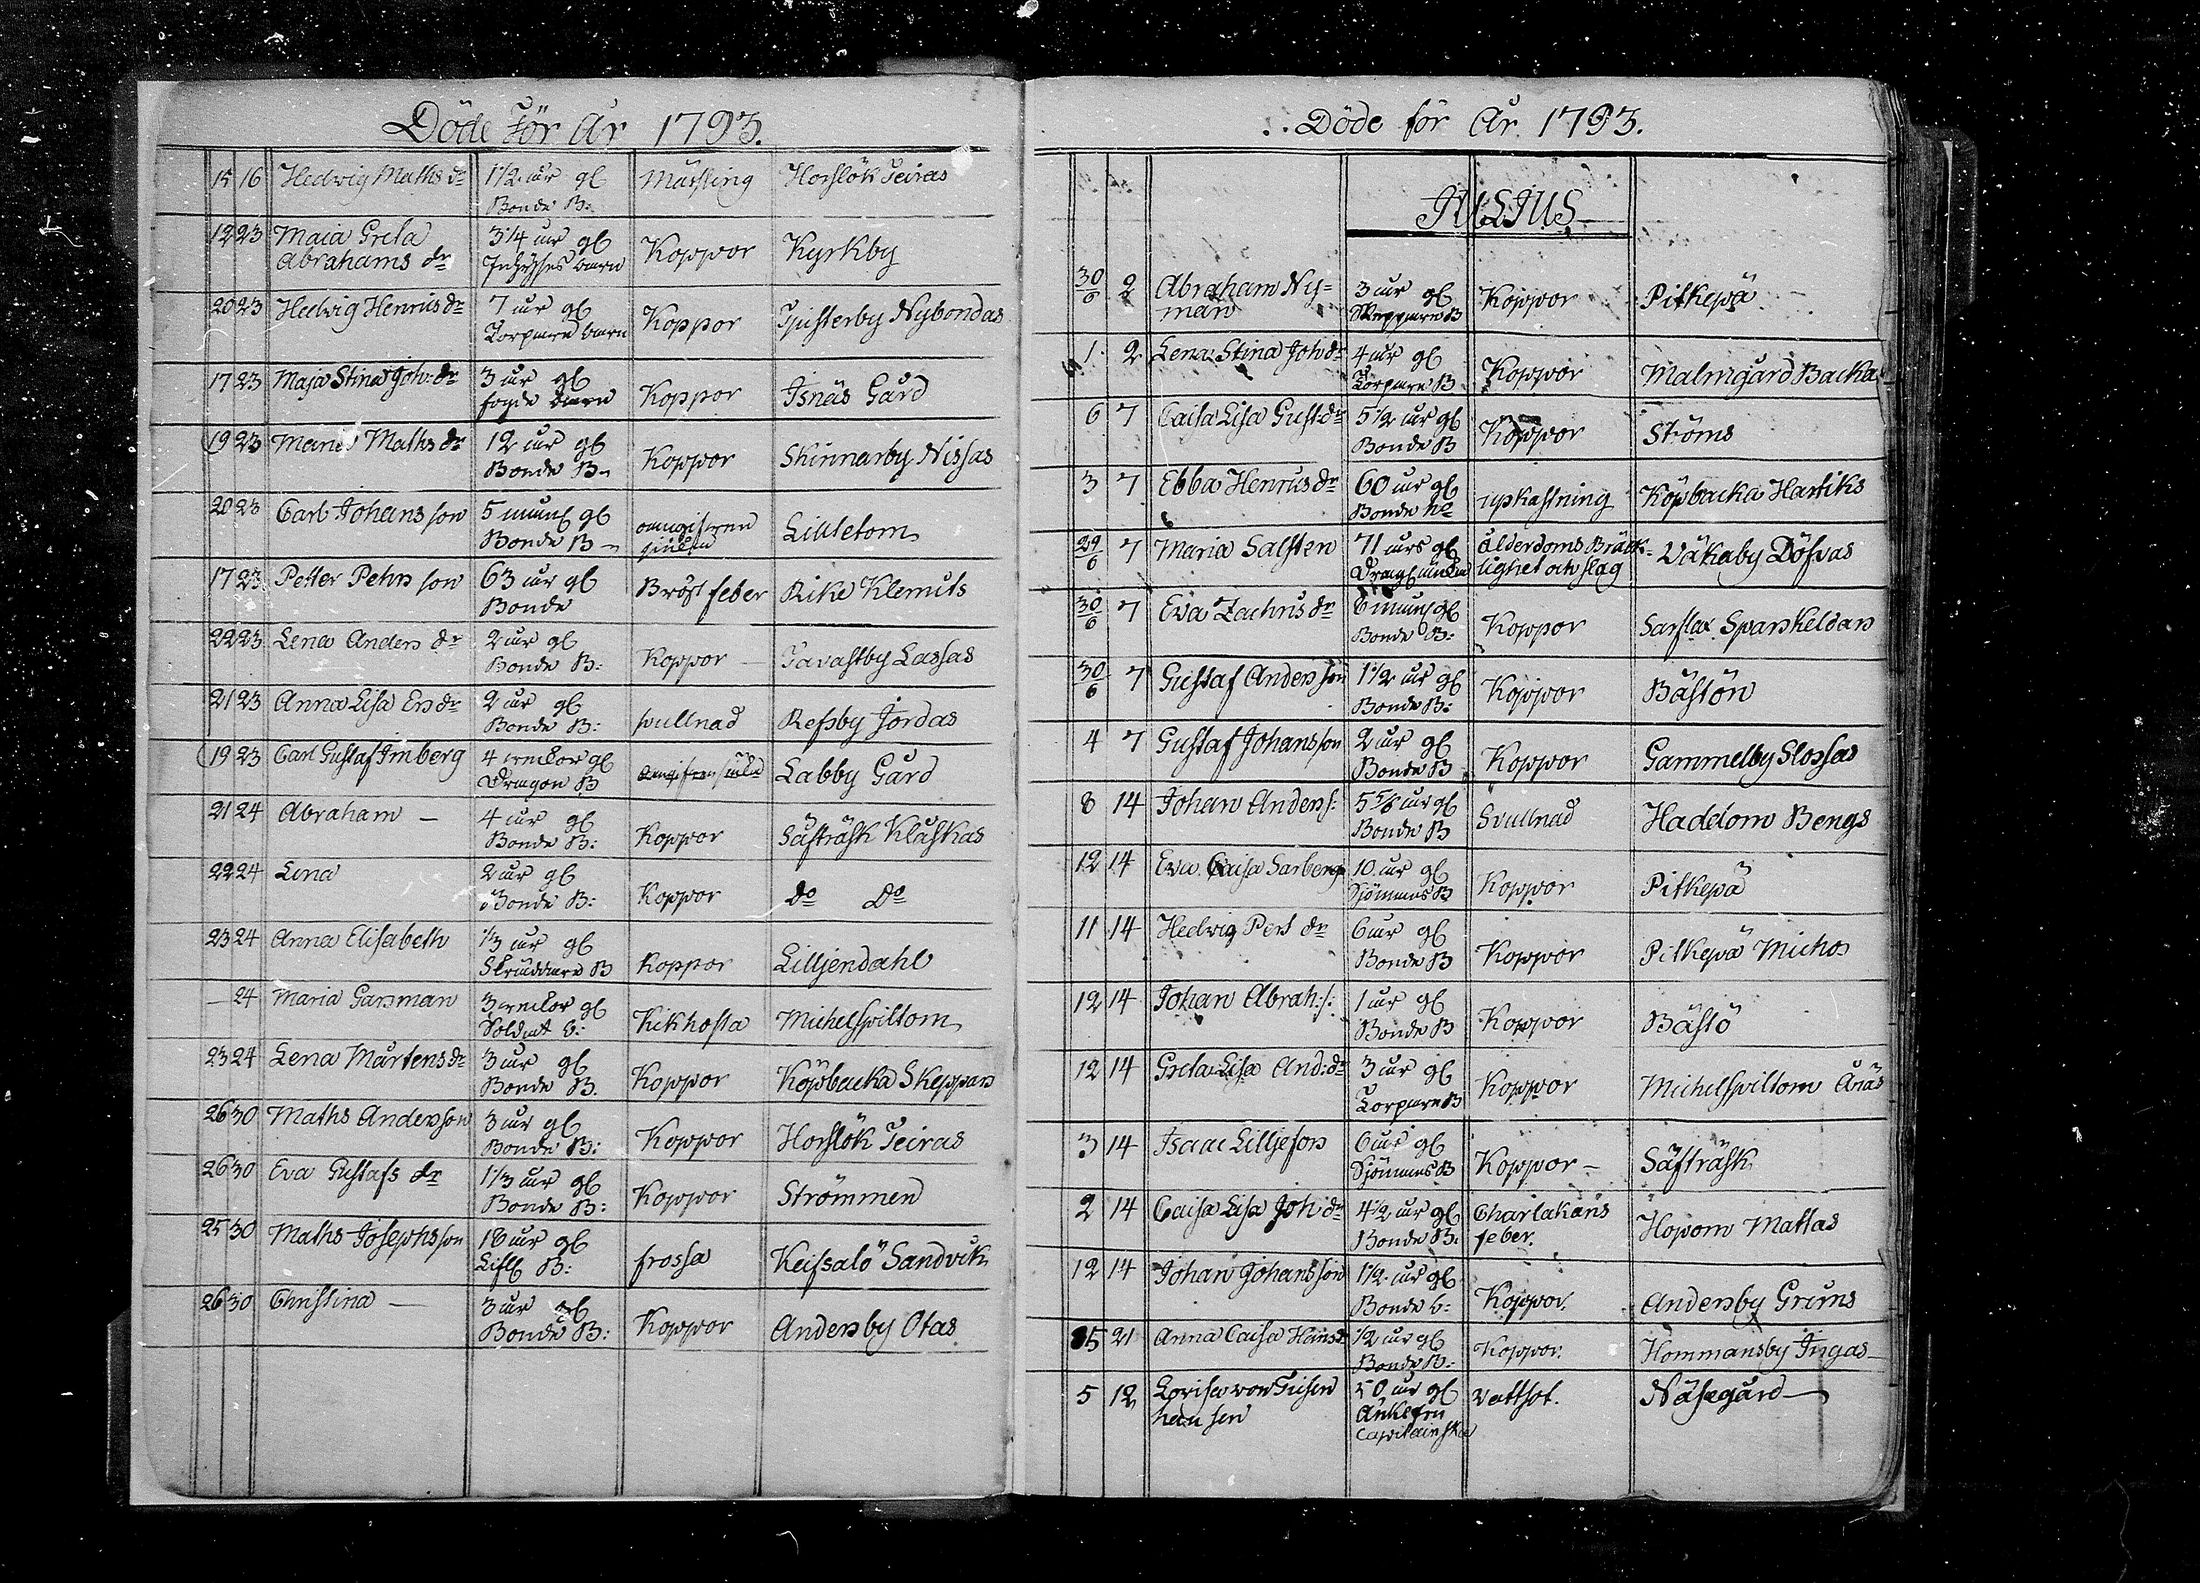 Döde För År 1793.
15 16 Hedwig Maths dr 1 1/2 år gl Mässling Horslök Teiras
Bonde B:
12 23 Maia Greta 3 1/4 år gl Koppor Kyrkby
Abrahams dr Inhyses barn
20 23 Hedwig Henrics dr 7 år gl Koppor Tjusterby Nybondas
Torpare barn
17 23 Maja Stina Joh: dr 3 år gl Koppor Isnäs Gård
fogde barn
19 23 Maria Maths dr 12 år gl Koppor Skinnarby Nissas
Bonde B
20 23 Carl Johans son 5 mån gl Lilletom
Bonde B
17 23 Petter Pehrs son 63 år gl Bröst feber Rike Klemets
Bonde
22 23 Lena Anders dr 2 år gl Koppor Tavastby Lassas
Bonde B:
21 23 Anna Lisa Ers dr 2 år gl svullnad Refsby Jordas
Bonde B:
19 23 Carl Gustaf Imberg 4 gl Labby Gård
Dragon B
21 24 Abraham — 4 år gl Koppor Säfträsk Klåskas
Bonde B:
22 24 Lena 2 år gl Koppor do Do
Bonde B:
23 24 Anna Elisabeth 1/3 år gl Koppor Lilljendahl
Skräddare B
— 24 Maria Garsman 3 gl Kikhosta Michelspiltom
Soldat b:
23 24 Lena Mårtens dr 3 år gl Koppor Köpbacka Skeppars
Bonde B.
26 30 Maths Anders son 3 år gl Koppor Horslök Teiras
Bonde B:
26 30 Eva Gustafs dr 1 1/3 år gl Koppor Strömmen
Bonde B:
25 30 Maths Josephsson 18 år gl frossa Keifsalö Sandvik
B:
26 30 Christina — 3 år gl Koppor Andersby Otas
Bonde B:
Döde för År 1793.
JULIUS
30/6 2 Abraham Ny= 3 år gl Koppor Pitkepä
man Skeppare B
1 2 Lena Stina Joh dr 4 år gl Koppor Malmgård Backa
Torpare B
6 7 Caisa Lisa Gust dr 5 1/2 år gl Koppor Ströms
Bonde B
3 7 Ebba Henrics dr 60 år gl upkastning Köpbacka Hartiks
Bonde
29/6 7 Maria Salsten 71 års gl ålderdoms Bräck- Wäkaby Döfvas
lighet och slag
30/6 7 Eva Zachris dr 6 mån gl Koppor Sarflax Sparskeldars
Bonde B:
30/6 7 Gustaf Anders son 1 1/2 år gl Koppor Bästön
Bonde B:
4 7 Gustaf Johansson 2 år gl Koppor Gammelby Slossas
Bonde B
8 14 Johan Anders: 5 5/6 år gl Svullnad Haddom Bengs
Bonde B
12 14 Eva Caisa Sarberg 10 år gl Koppor Pitkepä
Sjömans B
11 14 Hedvig Pers dr 6 år gl Koppor Pitkepä Michos
Bonde B
12 14 Johan Abrah: s: 1 år gl Koppor Bästö
Bonde B
12 14 Greta Lisa And: dr 3 år gl Koppor Michelspiltom Ånäs
Torpare B
3 14 Isaac Lilljefors 6 år gl Koppor — Säfträsk
Sjömans B
2 14 Caisa Lisa Joh dr 4 1/2 år gl Charlakans Hopom Mattas
Bonde B: feber.
12 14 Johan Johansson 1 1/2 år gl Koppor. Andersby Gröns
Bonde b:
15 21 Anna Caisa Hans d 1/2 år gl Koppor. Hommansby Ingas
Bonde B:
5 12 Lovisa von Tiesen 50 år gl Vattsot. Näsegård
hausen Änkefru
Capitainska